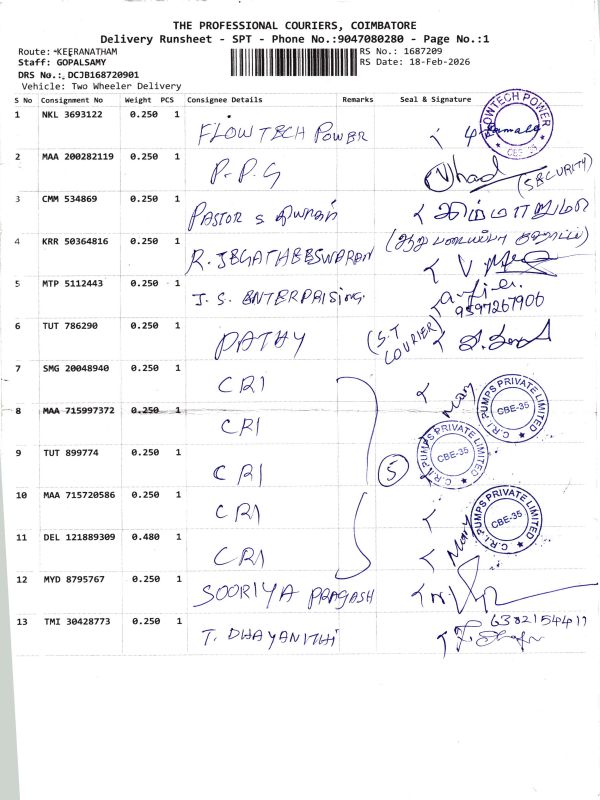 THE PROFESSIONAL COURIERS, COIMBATORE
Delivery Runsheet - SPT - Phone No.:9047080280 - Page No.:1
Route: *KEERANATHAM RS No.: 1687209
Staff: GOPALSAMY RS Date: 18-Feb-2026
DRS No.: DCJB168720901
Vehicle: Two Wheeler Delivery
S No Consignment No Weight PCS Consignee Details Remarks Seal & Signature
1 NKL 3693122 0.250 1 FLOWTECH POWER
FLOWTECH POWER CBE-35
2 MAA 200282119 0.250 1 P.P.G (SECURITY)
3 CMM 534869 0.250 1 PASTOR S
4 KRR 50364816 0.250 1 R. JEGATHEESWARAN
5 MTP 5112443 0.250 1 J.S. ENTERPRISING
9597267906
6 TUT 786290 0.250 1 PATHY (S.T COURIER)
7 SMG 20048940 0.250 1 CRI Mary
C.R.I. PUMPS PRIVATE LIMITED CBE-35
8 MAA 715997372 0.250 1 CRI
C.R.I. PUMPS PRIVATE LIMITED CBE-35
9 TUT 899774 0.250 1 CRI 5
10 MAA 715720586 0.250 1 CRI
C.R.I. PUMPS PRIVATE LIMITED CBE-35
11 DEL 121889309 0.480 1 CRI Mary
12 MYD 8795767 0.250 1 SOORIYA PRAGASH
13 TMI 30428773 0.250 1 T. DHAYANITHI 6382154411